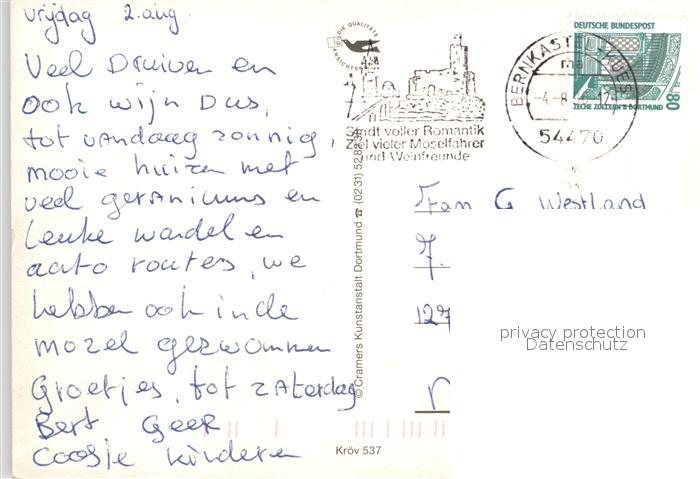 vrijdag 2. aug.
Veel Druiven en
ook wijn Dus,
tot vandaag zonnig,
mooie huizen met
veel geraniums en
Leuke wandel en
auto routes, we
hebben ook in de
mozel gezwommen
Groetjes, tot zaterdag
Bert Geer
Coosje kinderen
DIE QUALITÄTS
ANSICHTSKARTE
Stadt voller Romantik
Ziel vieler Moselfahrer
und Weinfreunde
BERNKASTEL-KUES
-4.-8.
54470
DEUTSCHE BUNDESPOST
80
ZECHE ZOLLERN II DORTMUND
© Cramers Kunstanstalt Dortmund ☎ (0231)
Fam G Westland
7.
127
privacy protection
Datenschutz
Kröv 537